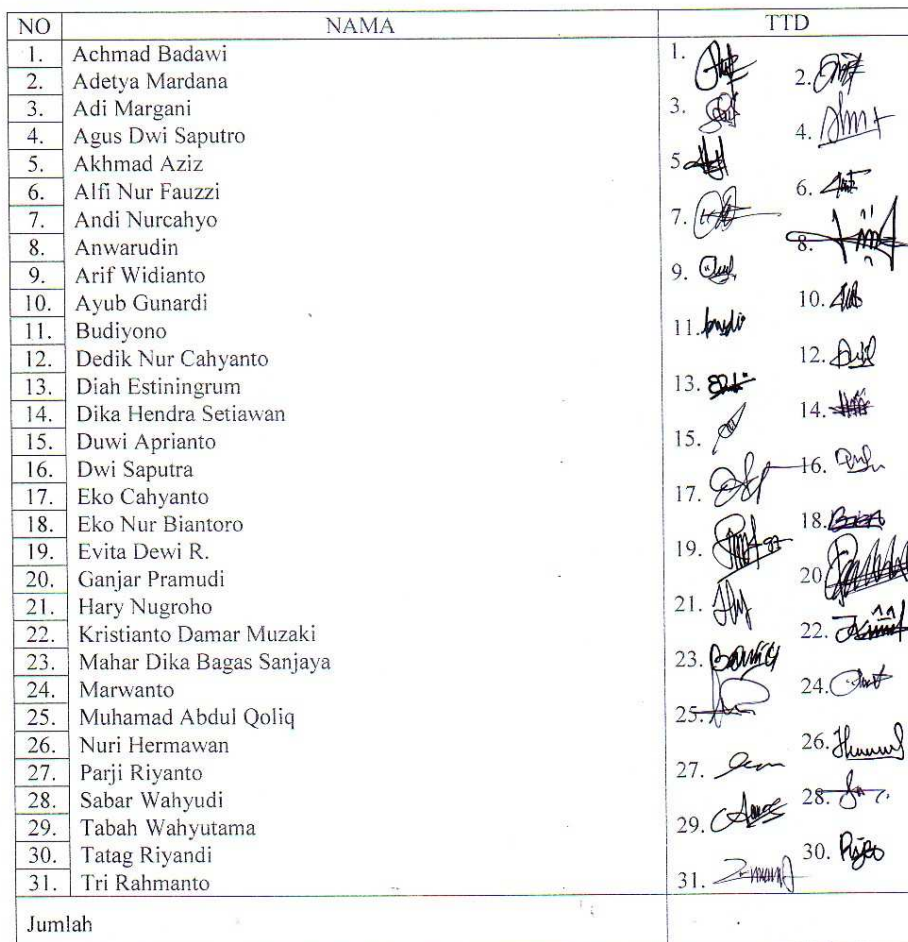 NO NAMA TTD
1. Achmad Badawi 1.
2. Adetya Mardana 2.
3. Adi Margani 3.
4. Agus Dwi Saputro 4.
5. Akhmad Aziz 5.
6. Alfi Nur Fauzzi 6.
7. Andi Nurcahyo 7.
8. Anwarudin 8.
9. Arif Widianto 9.
10. Ayub Gunardi 10.
11. Budiyono 11.
12. Dedik Nur Cahyanto 12.
13. Diah Estiningrum 13.
14. Dika Hendra Setiawan 14.
15. Duwi Aprianto 15.
16. Dwi Saputra 16.
17. Eko Cahyanto 17.
18. Eko Nur Biantoro 18.
19. Evita Dewi R. 19.
20. Ganjar Pramudi 20.
21. Hary Nugroho 21.
22. Kristianto Damar Muzaki 22.
23. Mahar Dika Bagas Sanjaya 23.
24. Marwanto 24.
25. Muhamad Abdul Qoliq 25.
26. Nuri Hermawan 26.
27. Parji Riyanto 27.
28. Sabar Wahyudi 28.
29. Tabah Wahyutama 29.
30. Tatag Riyandi 30.
31. Tri Rahmanto 31.
Jumlah